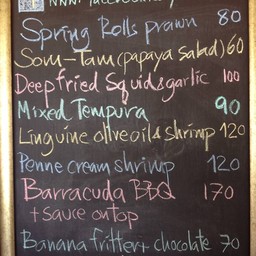 Spring Rolls prawn 80
Som-Tam (papaya salad) 60
Deep fried Squid & garlic 100
Mixed Tempura 90
Linguine olive oil & shrimp 120
Penne cream shrimp 120
Barracuda BBQ 170
+ sauce on top
Banana fritter + chocolate 70